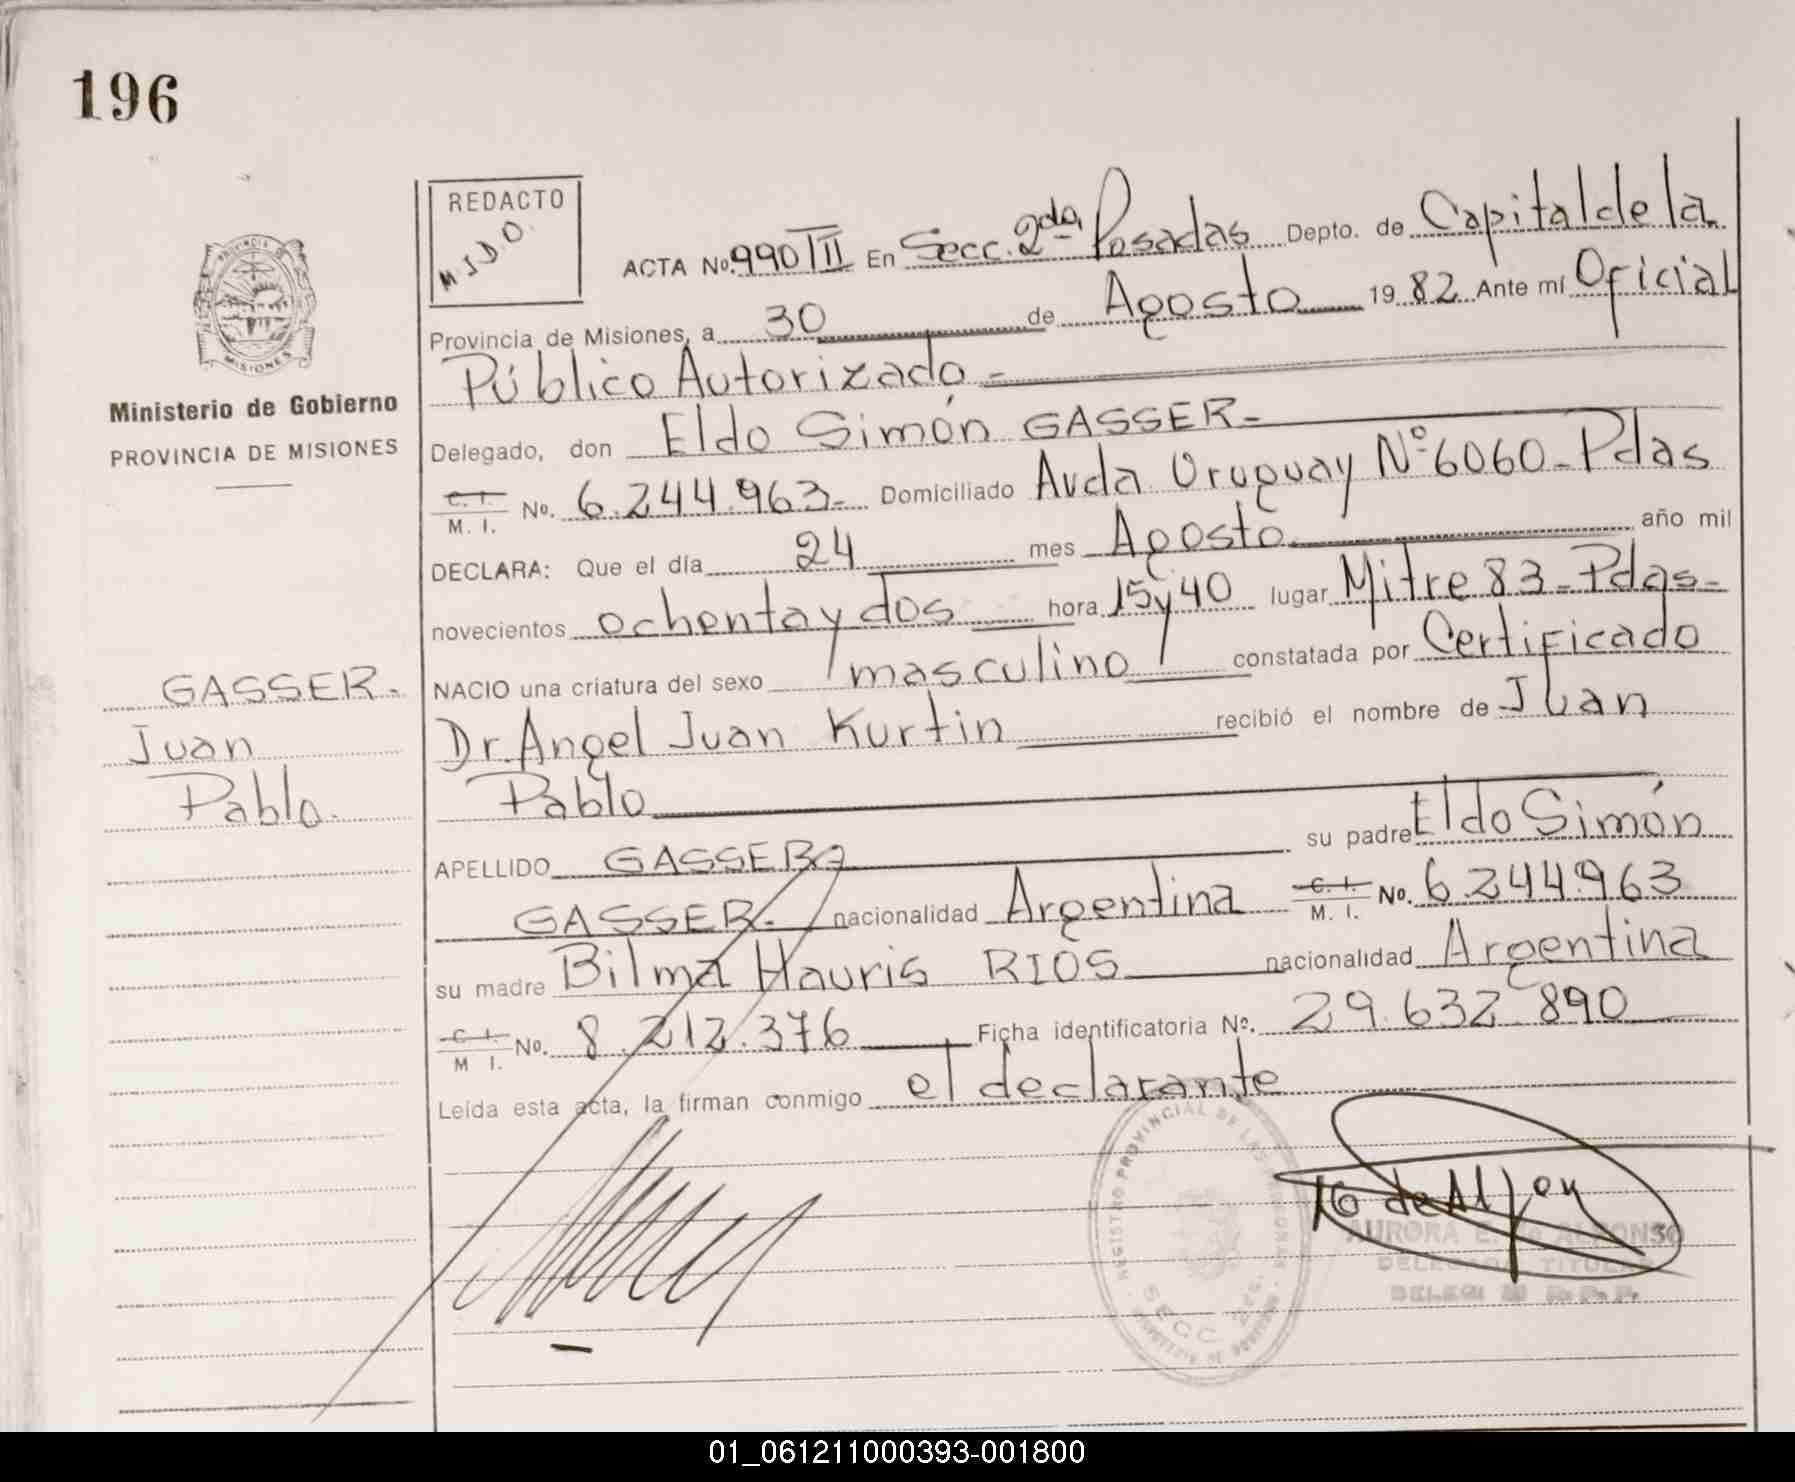 196
REDACTO
M.J.D.O.
ACTA No. 990 TII En Secc. 2da Posadas Depto. de Capital de la
Provincia de Misiones, a 30 de Agosto 1982 Ante mí Oficial
Público Autorizado -
Delegado, don Eldo Simón GASSER -
C. I. M. I. No. 6.244.963 - Domiciliado Avda Uruguay Nº 6060 - Pdas
DECLARA: Que el día 24 mes Agosto año mil
novecientos ochenta y dos hora 15 y 40 lugar Mitre 83 - Pdas -
NACIO una criatura del sexo masculino constatada por Certificado
Dr. Angel Juan Kurtin recibió el nombre de Juan
Pablo
APELLIDO GASSER su padre Eldo Simón
GASSER. nacionalidad Argentina C. I. M. I. No. 6.244.963
su madre Bilma Hauris RIOS nacionalidad Argentina
C. I. M I. No. 8.212.376 Ficha identificatoria Nº. 29.632.890
Leída esta acta, la firman conmigo el declarante
PROVINCIA DE
MISIONES
Ministerio de Gobierno
PROVINCIA DE MISIONES
GASSER.
Juan
Pablo.
REGISTRO PROVINCIAL DE LAS PERSONAS
SECC. 2da.
AURORA E. de ALFONSO
DELEGADA TITULAR
01_061211000393-001800